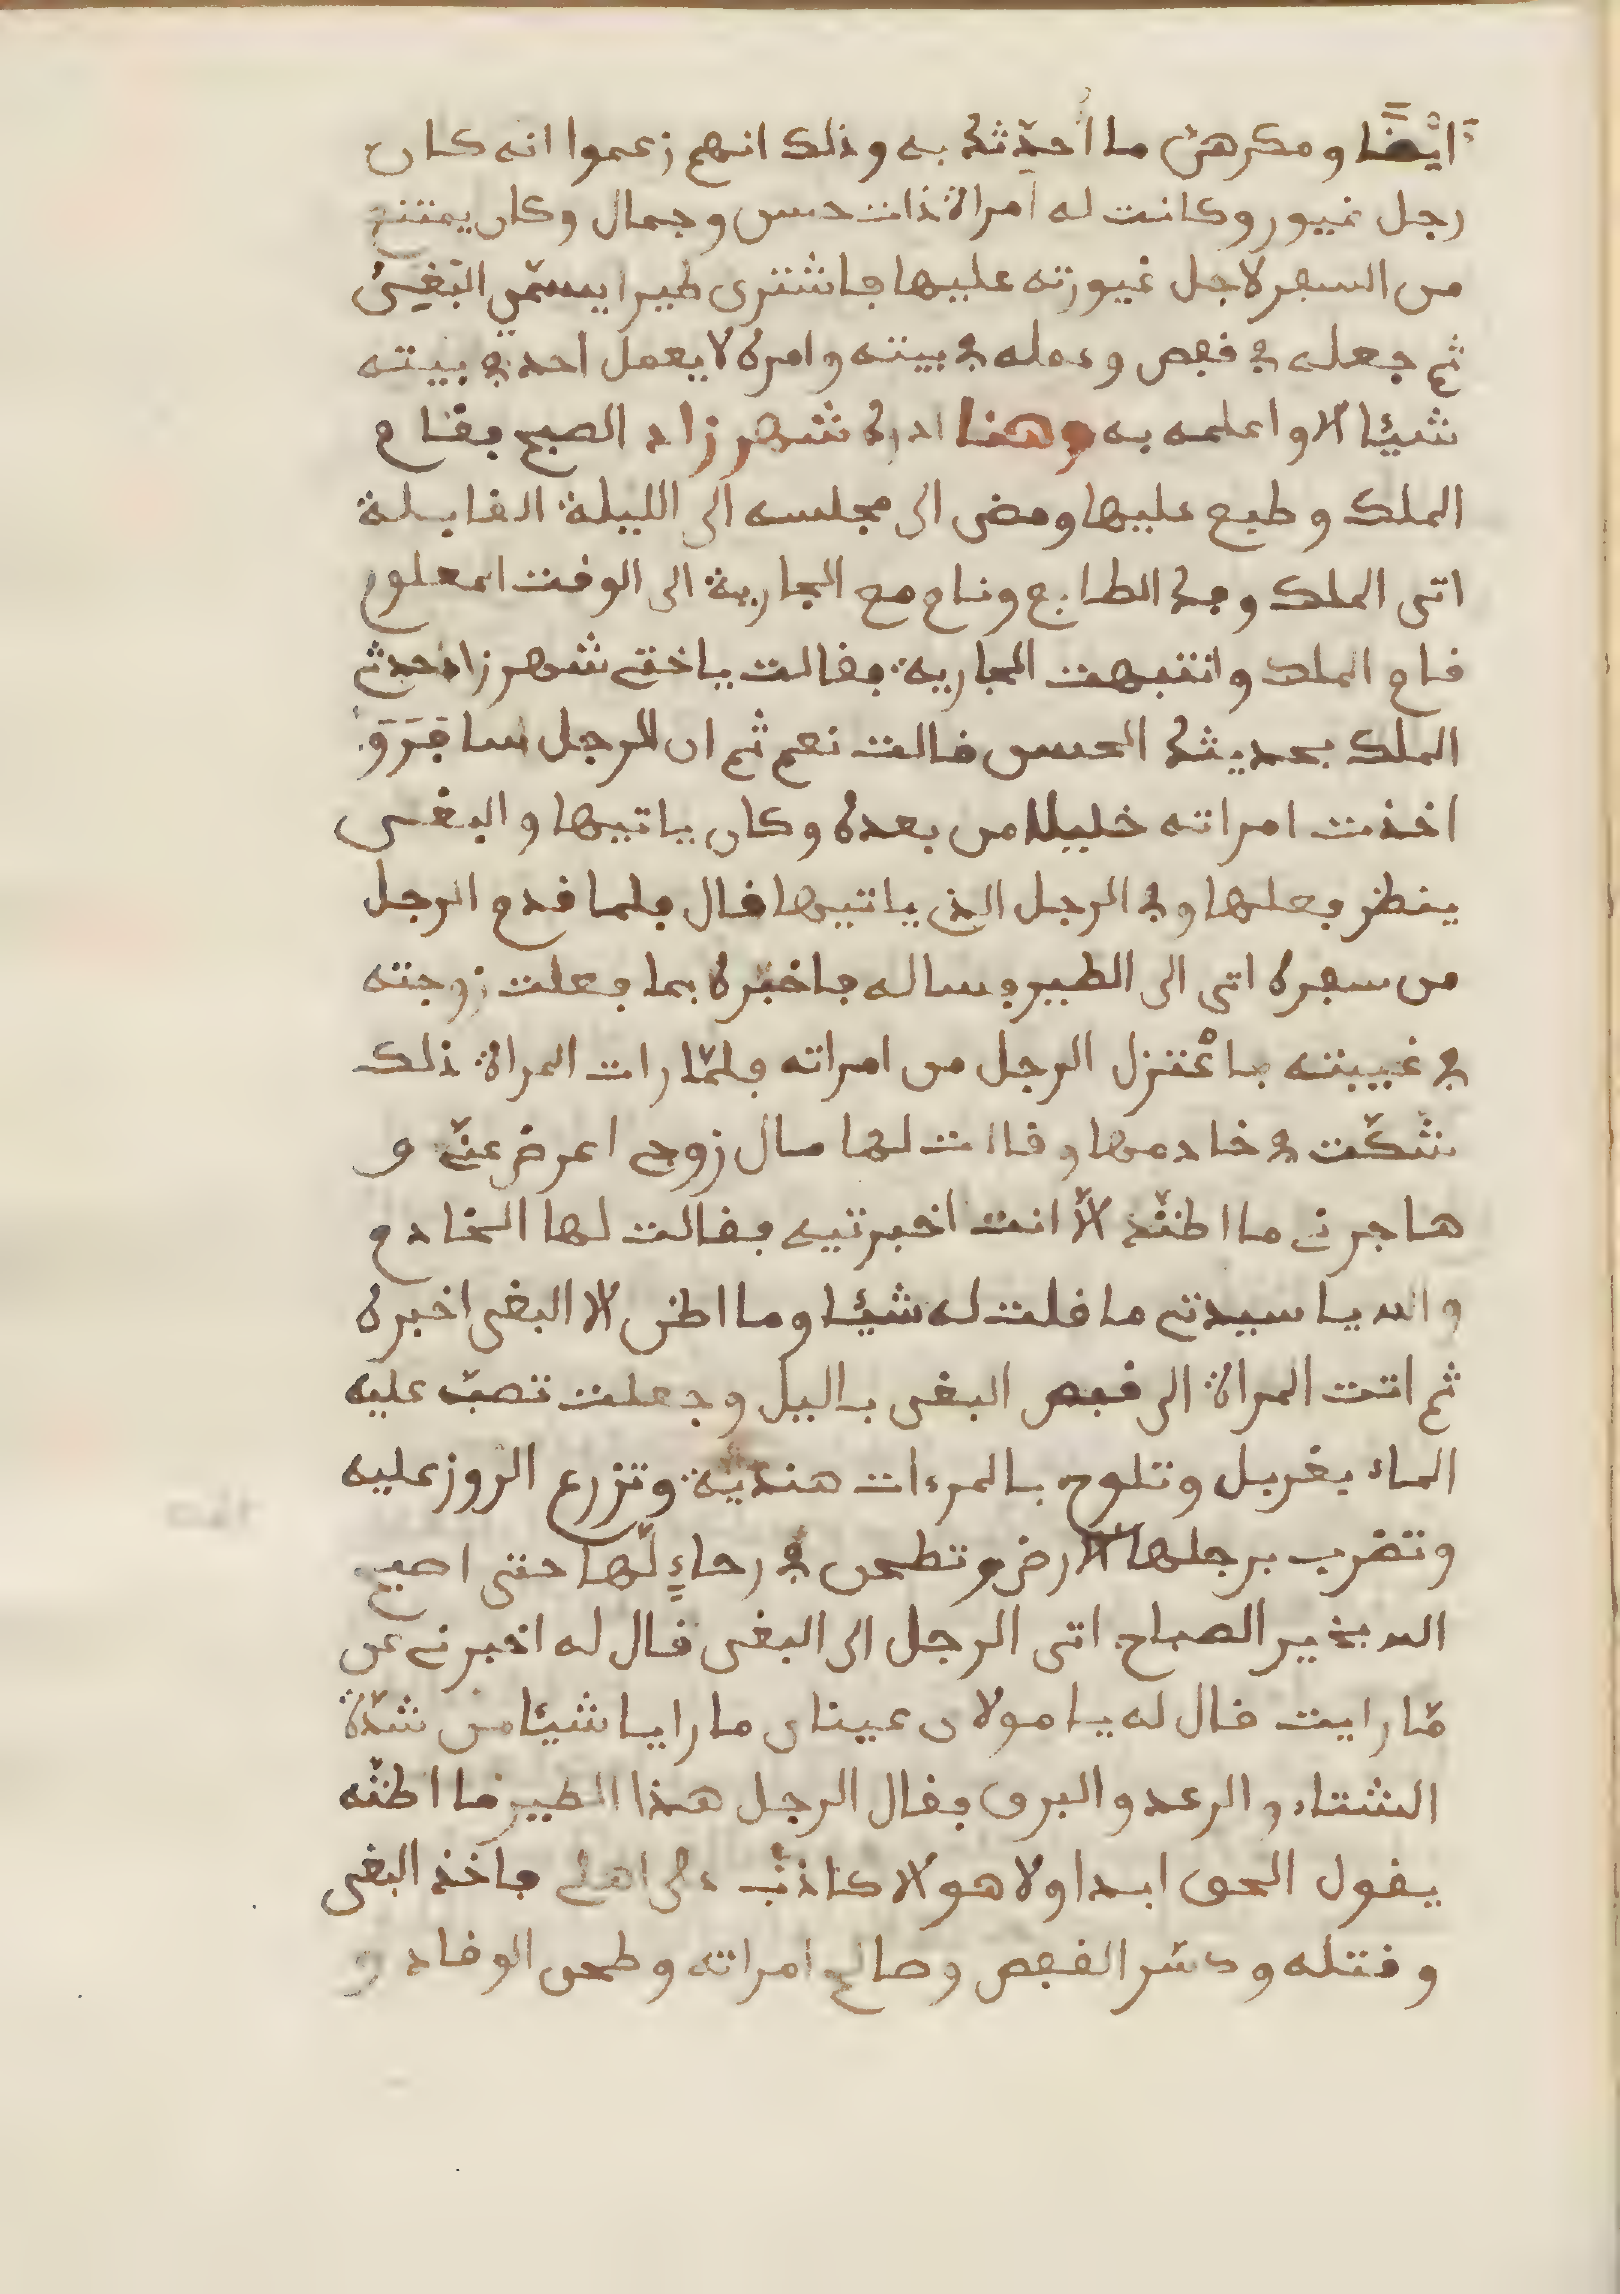 اَيْضًا ومكرهنّ ما اُحدِّثك به وذلك انهم زعموا انه كان
رجل غيور وكانت له امراة ذات حسن وجمال وكان يمتنع
من السفر لاجل غيورته عليها فاشترى طيرا يسمّى البَغِىُ
ثم جعله في قفص وعمله في بيته وامره لا يعمل احد في بيته
شيئا الا واعلمه به وهنا ادرك شهر زاد الصبح فقام
الملك وطبع عليها ومضى الى مجلسه الى الليلة القابلة
اتى الملك وفك الطابع ونام مع الجارية الى الوقت المعلوم
قام الملك وانتبهت الجارية فقالت يا ختي شهر زاد حدثي
الملك بحديثك الحسن قالت نعم ثم ان الرجل سافَرَ وَ
اخذت امراته خليلا من بعده وكان ياتيها والبغى
ينظر فعلها وفي الرجل الذي ياتيها قال فلما قدم الرجل
من سفره اتى الى الطير وساله فاخبره بما فعلت زوجته
في غيبته فاعْتزل الرجل من امراته فلمّا رات المراة ذلك
شكّت في خادمها وقالت لها مال زوجي اعرض عنّي و
هاجرني ما اظنّك الاّ انت اخبرتيه فقالت لها الخادم
والله يا سيدتي ما قلت له شيئا وما اظن الا البغى اخبره
ثم اتت المراة الى قفص البغى باليل وجعلت تصبّ عليه
الماء بغربل وتلوح بالمرءات هنديّة وتزرع الروز عليه
وتضرب برجلها الارض وتطحن في رحاءٍ لّها حتى اصبح
الله بخير الصباح اتى الرجل الى البغى قال له اخبرني عن
مّا رايت قال له يا مولاى عيناى ما رايا شيئا من شدّة
الشتاء والرعد والبرق فقال الرجل هذا الطير ما اظنّه
يقول الحق ابدا ولا هو الا كاذب على اهلي فاخذ البغى
وقتله وكسّر القفص وصالح امراته وطحن الوقاد و